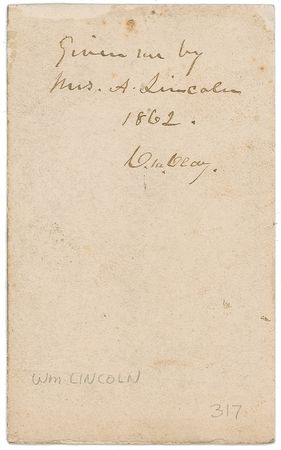 Given me by
Mrs. A. Lincoln
1862.
Wm LINCOLN
317